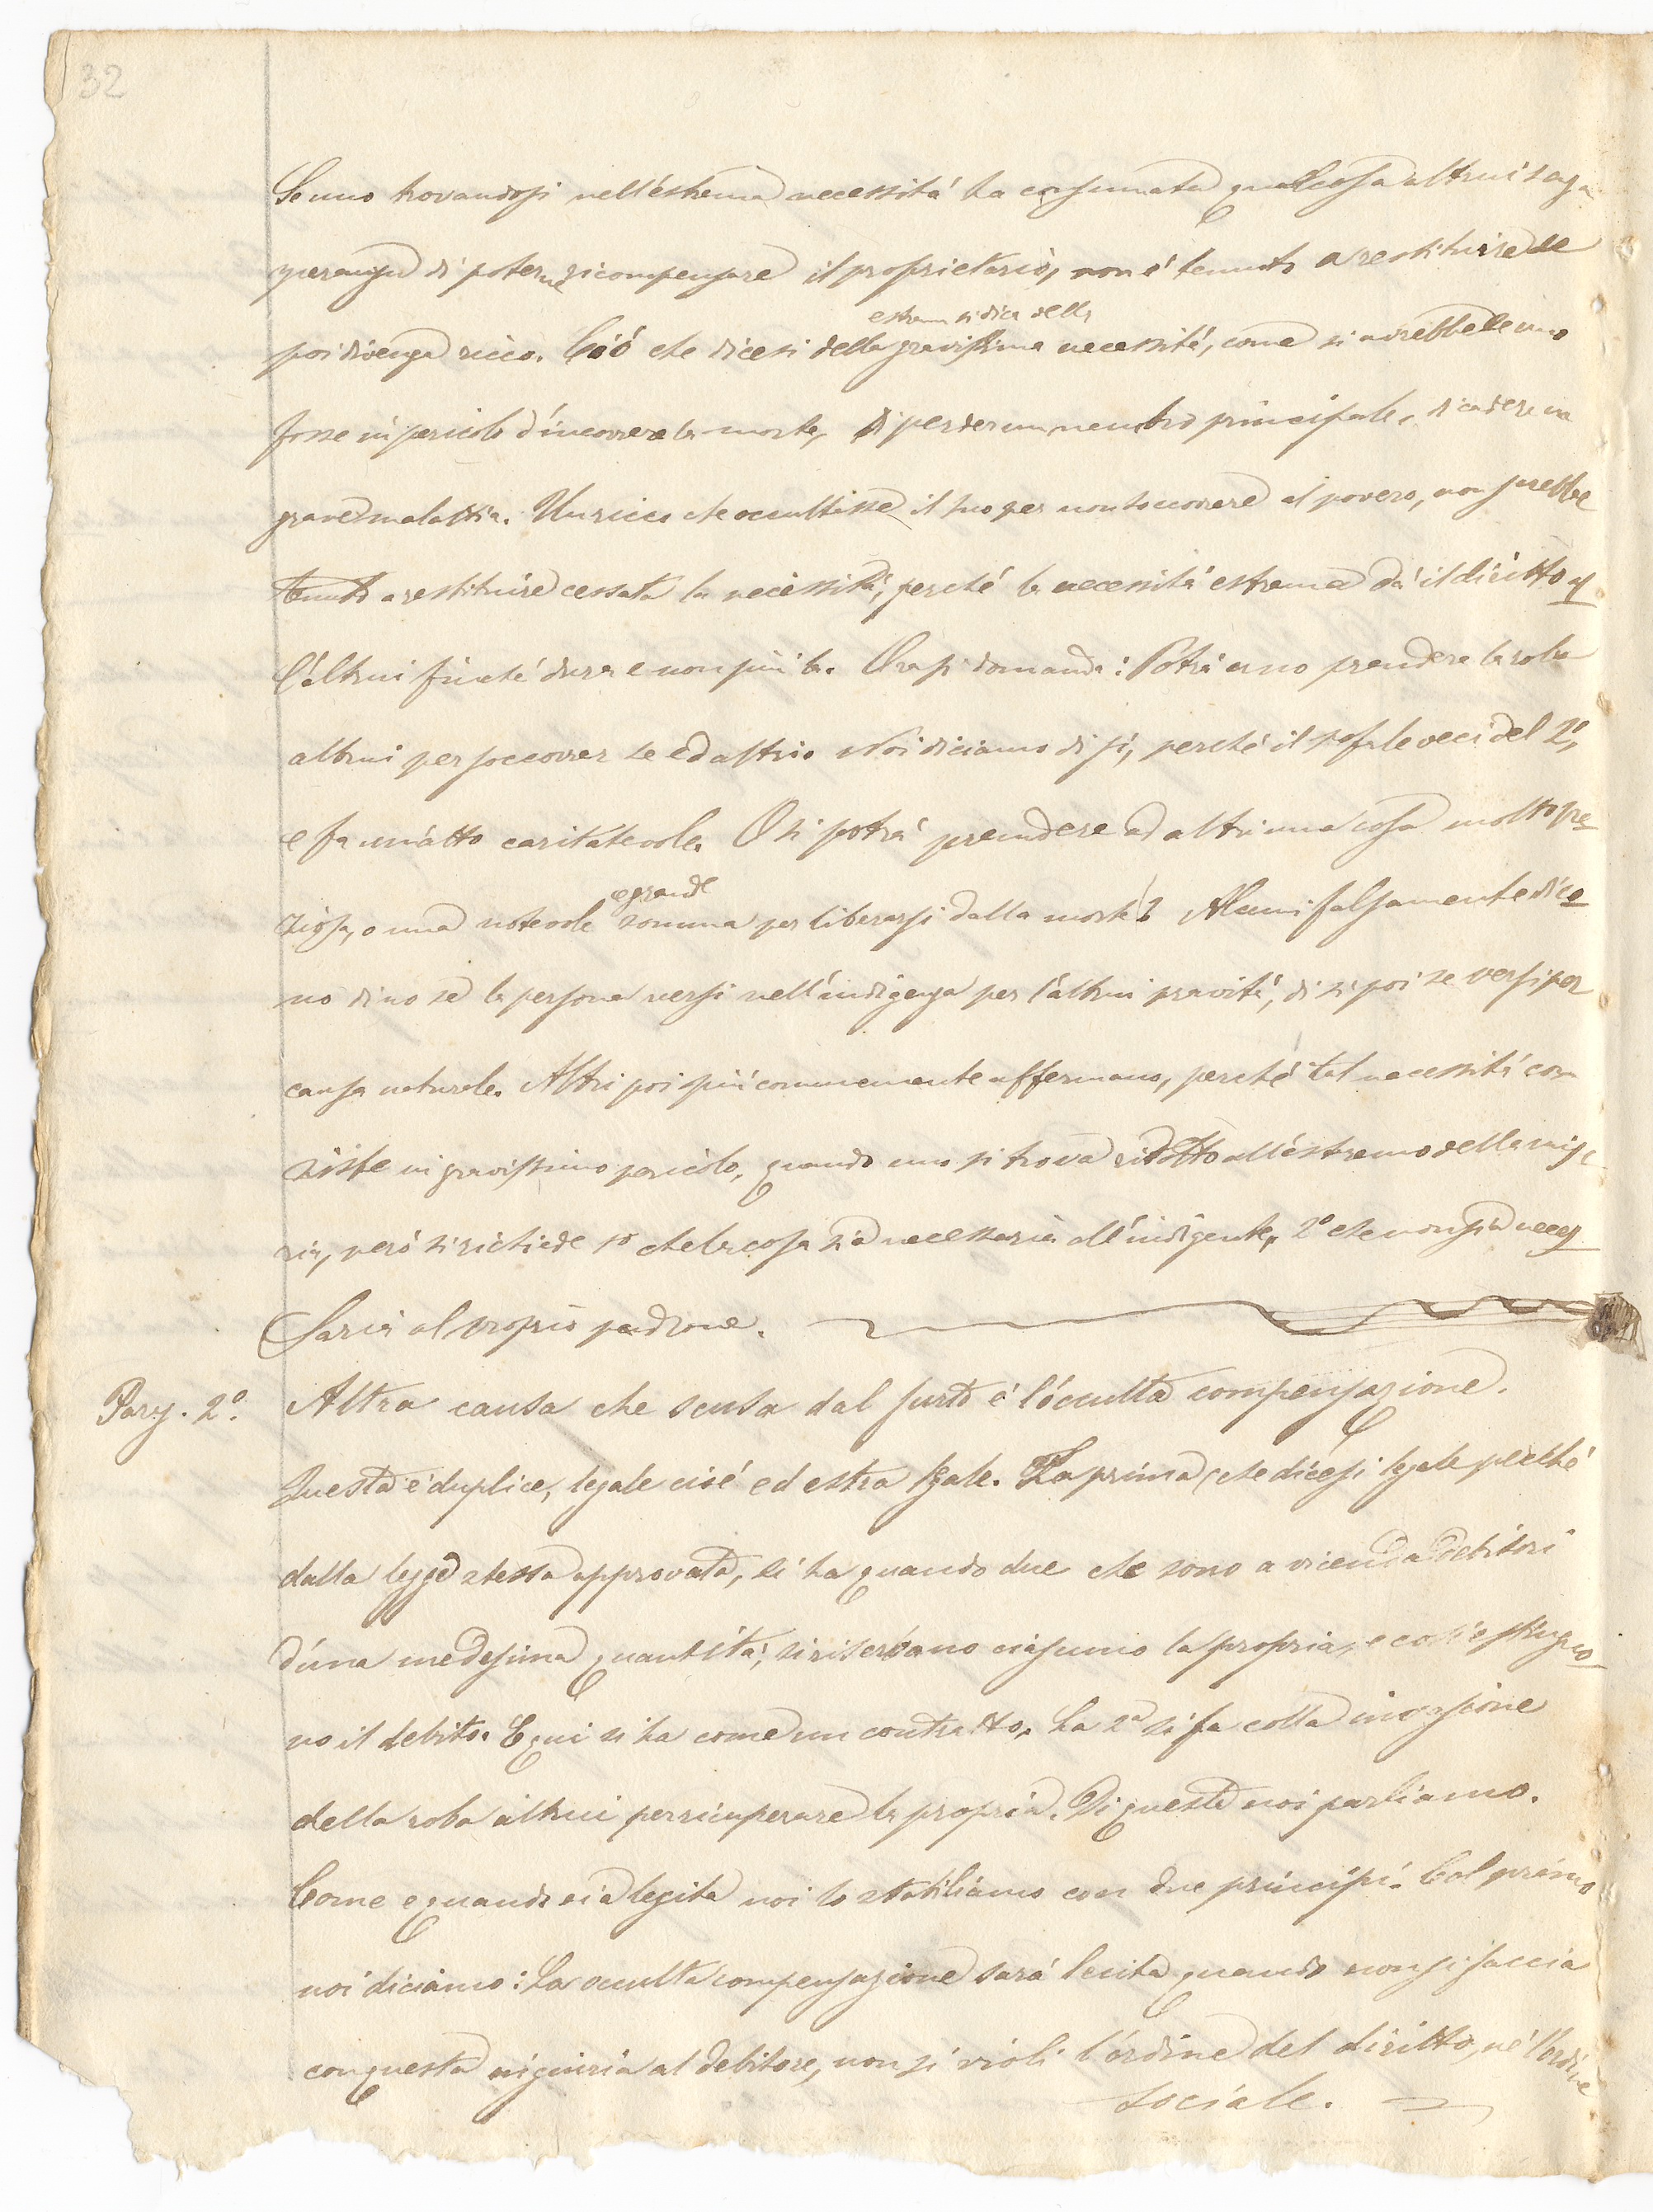 32
Se uno trovandosi nell'éstrema necessitá ha consumata qualcosa altrui senza
speranza di poterne ricompensare il proprietario, non é tenuto a restituire se
poi divenga ricco. Ció che dicesi della
estrem si dice della
gravissima necessitá, come si avrebbe se uno
fosse in pericolo d'incorrere la morte, di perder un membro principale, di cadere in
grave malattia. Un ricco che occultasse il suo per non soccorrere al povero, non sarebbe
tenuto a restituire cessata la necessitá, perché la necessitá estrema dá il diritto al
l'áltrui finché dura e non piú la. Ora si domanda: Potrá uno prendere la roba
altrui per soccorrer se ed altri? Noi diciamo di sí, perché il 1º fa le veci del 2º,
e fa un átto caritatevole. O si potrá prendere ad altri una cosa molto pre
ziosa, o una notevole e grande somma per liberarsi dalla morte? Alcuni falsamente dico
no di no se la persona versi nell'indigenza per l'áltrui pravitá, di sí poi se versi per
causa naturale. Altri poi piú comunemente affermano, perché tal necessitá con
siste in gravissimo pericolo, quando uno si trova ridotto all'éstremo della mise
ria, peró si richiede 1º che la cosa sia necessaria all'indigente, 2º che non sia neces
saria al proprio padrone.
Parg. 2º. Altra causa che scusa dal furto é l'ócculta compensazione.
Questa é duplice, legale cioé ed estra legale. La prima, che dicesi legale perché
dalla legge stessa approvata, si ha quando due che sono a vicenda debitori
d'úna medesima quantitá, si riserbano ciascuno la propria, e cosí estinguo
no il debito. E qui si ha come un contratto. La 2ª si fa colla invasione
della roba altrui per ricuperare la propria. Di questa noi parliamo.
Come e quando sia legita noi lo stabiliamo con due principi. Col primo
noi diciamo: La occulta compensazione sará lecita quando non si faccia
con questa ingiuria al debitore, non si violi l'órdine del diritto, né l'órdine
sociale.